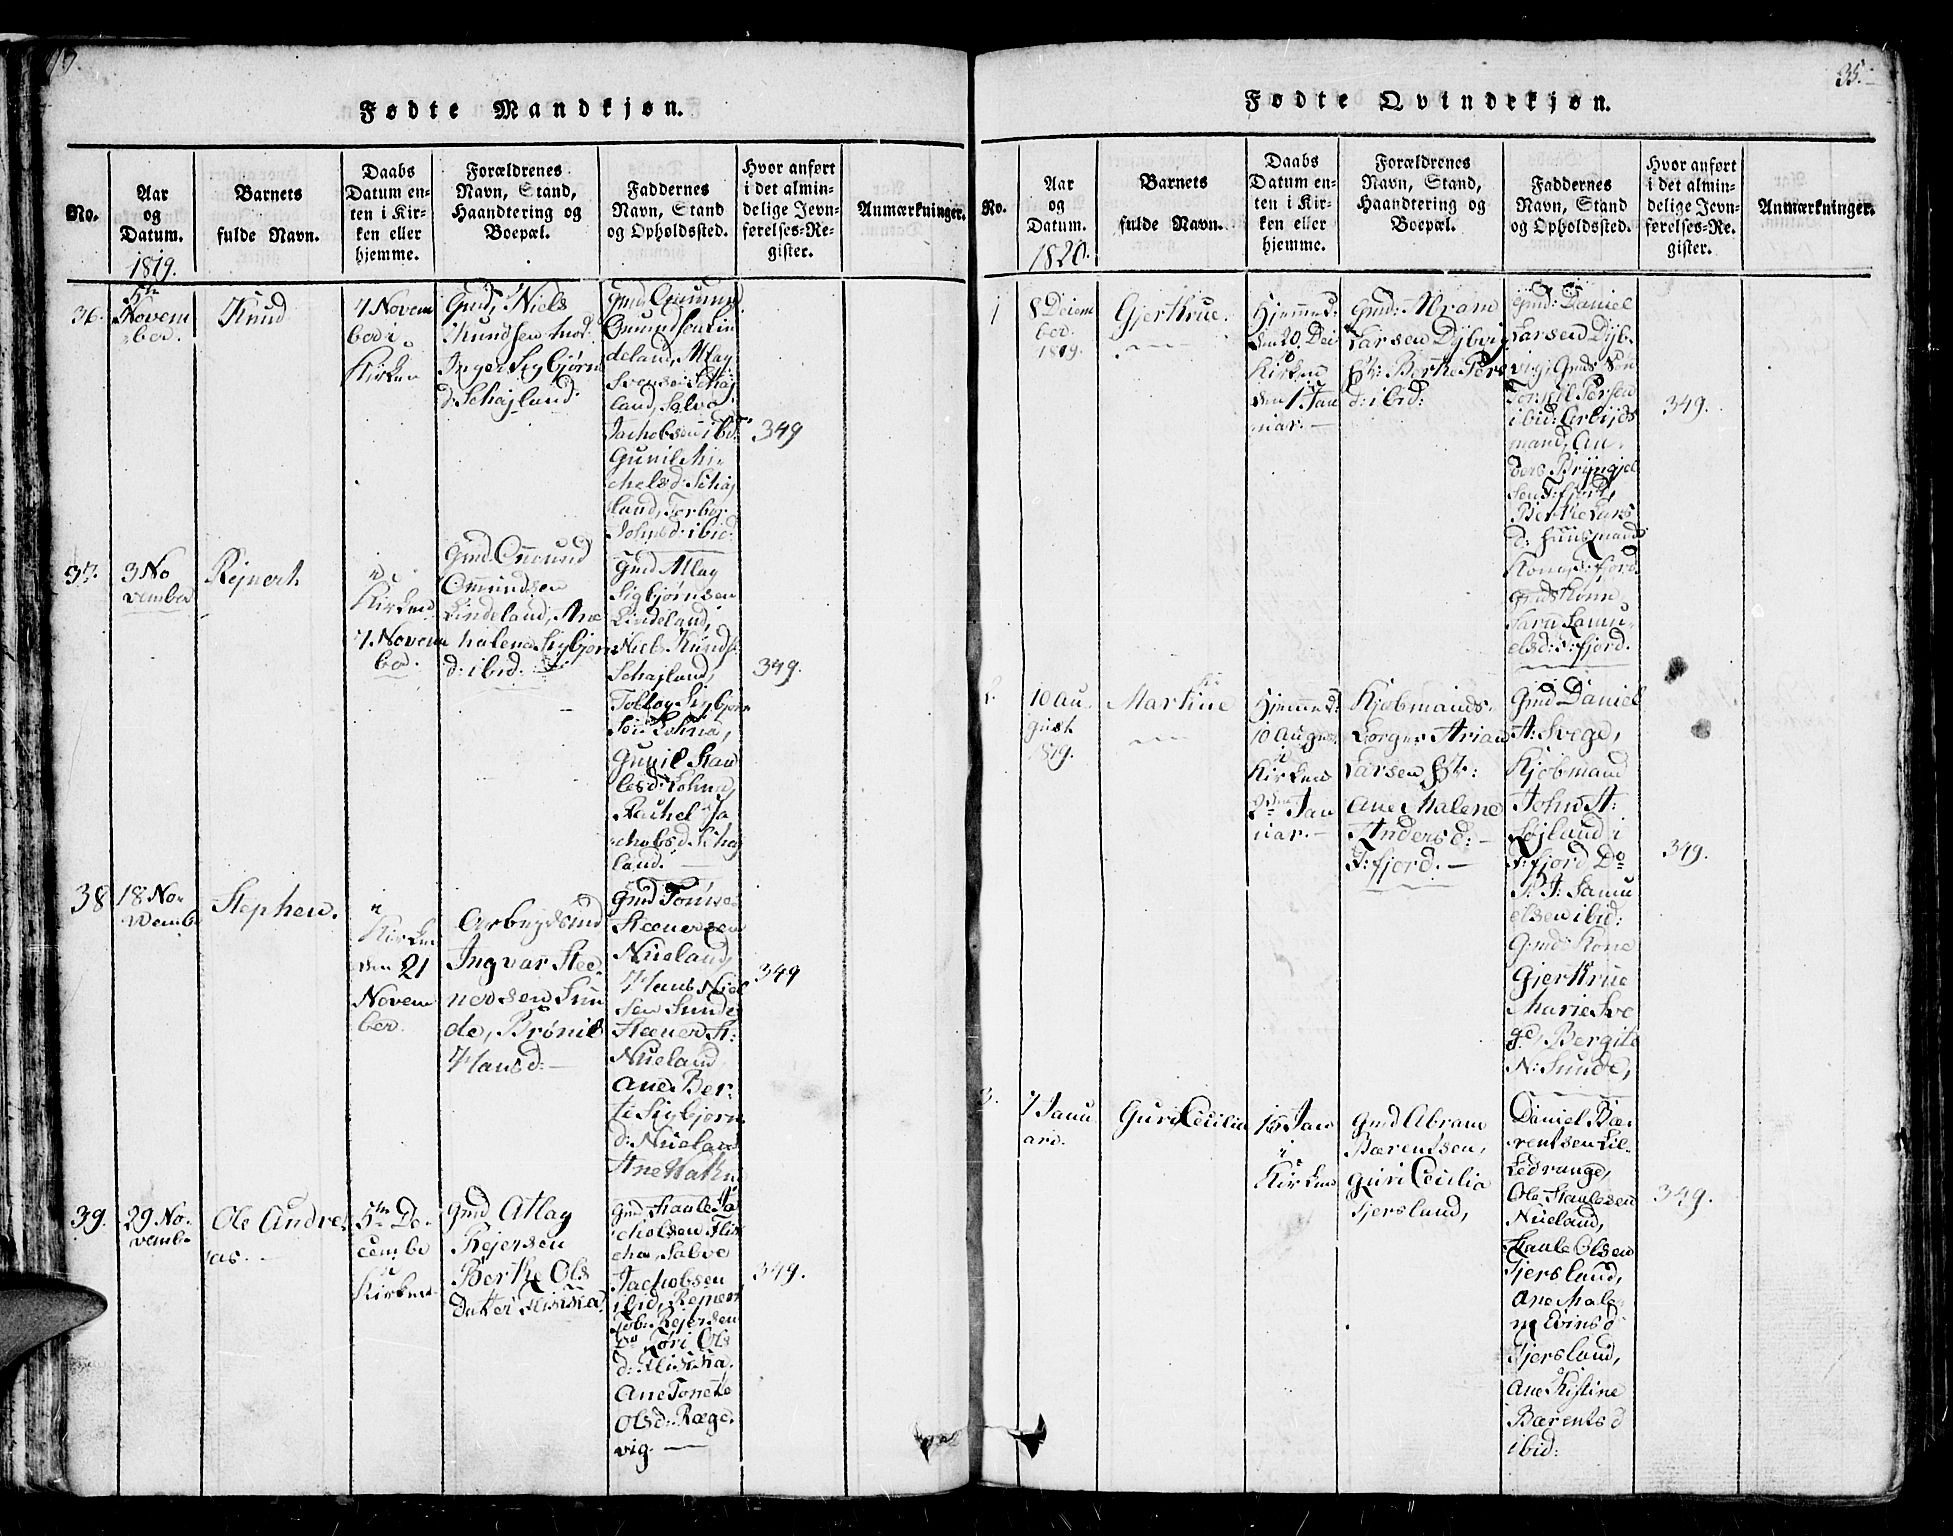 Fødte Mandkjøn.
No.
Aar
og
Datum.
1819.
Barnets
fulde Navn.
Daabs
Datum en-
ten i Kir-
ken eller
hjemme.
Forældrenes
Navn, Stand,
Haandtering og
Boepæl.
Faddernes
Navn, Stand
og Opholdssted.
Hvor anført
i det almin-
delige Jevn-
førelses-Re-
gister.
Anmærkninger.
36.
5te
Novem
ber.
Knud
7 Novem
ber i
Kirken
Gmd, Niels
Knudsen mod.
Inger Sigbjørns
d. Schajland.
Gmd Ommund
Omundsen Lin
deland, Atlag
Svensen Schaj
land, Salve
Jachobsen ibd:
Gunil Mi-
chelsd: Schaj
land, Torber
Johnsd: ibid:
349
37.
3 No
vember
Rejnert
i
Kirken
7 Novem
ber.
Gmd. Omund
Omundsen
Lindeland, Ane
Malena Sigbjørn
d: ibid.
Gmd Atlag
Sigbjørnsen
Lindeland,
Niels Knuds:
Schajland,
Tollag Sigbjørn
sen
Gunil Staa
lesd:
Rachel Ja
chobsd. Schaj
land.
349.
38
18 No-
vembr
Stephen.
i
Kirken
den 21
Novem
ber.
Arbeydsmd
Ingvar Stee-
nersen Sun
de, Brønil
Hansd:
Gmd Tønnes
Steenersen
Nueland,
Hans Niel
sen Sunde
Steener St:
Nueland
Ane Ber-
te Sigbjørn
d: Nueland
Ane
349
39.
29 No-
vembr
Ole Andre
as.
5te De-
cembr
i
Kirken
Gmd Atlag
Rejersen
Berthe Ols
Datter Flikka
Gmd Staale Ja
chobsen Flik
cha, Salve
Jachobsen
ibid, Rejnert
Rejersen
do Tori Ols
d: Flikka.
Ane Tonette
Olsd: Ræge-
vig.
349.
35.
Fødte Qvindekjøn.
No.
Aar
og
Datum.
1820.
Barnets
fulde Navn.
Daabs
Datum en-
ten i Kir-
ken eller
hjemme.
Forældrenes
Navn, Stand,
Haandtering og
Boepæl.
Faddernes
Navn, Stand
og Opholdssted.
Hvor anført
i det almin-
delige Jevn-
førelses-Re-
gister.
Anmærkninger.
1
8 Decem
ber
1819.
Gjertrue.
Hjemmed:
den 20. Dec
i
Kirken
den 1 Jan
uar.
Gmd: Abram
Larsen Dybvig
Berthe Pers
d: ibid:
Gmd: Daniel
Larsen Dyb-
vig, Gmds Søn
Torkil Persen
ibid: Arbejds
mand, An-
ders Bryngjel
sen T: fjord,
Berthe Lars
d: Huusmands
Kone, S: fjord.
Gmds Kone
Sara Samu-
elsd: S: fjord.
349.
2.
10 Au-
gust
1819.
Martine
Hjemmed:
10 August
i
Kirken
2den Jan
uar.
Kjøbmands-
Borger Arian
Larsen
Ane Malene
Andersd:
S: fjord.
Gmd Daniel
A: Svege,
Kjøbmand
John A:
Løjland i
S: fjord Do
P. T: Samu
elsen ibid:
Gmd: Kone
Gjertrue
Marie Sve
ge, Bergite
N: Sunde,
349.
3.
7 Janu
ari.
Guri Cecilia
16 Jan
i
Kirken
Gmd Abram
Bærentsen,
Guri Cecilia
Fjersland,
Daniel Bæ-
rentsen Lil-
ledrange,
Ole Staalesen
Nueland,
Staale Olsen
Fjersland,
Ane Male
ne Evinsd
Fjersland,
Ane Kistine
Bærentsd
ibid:
349.